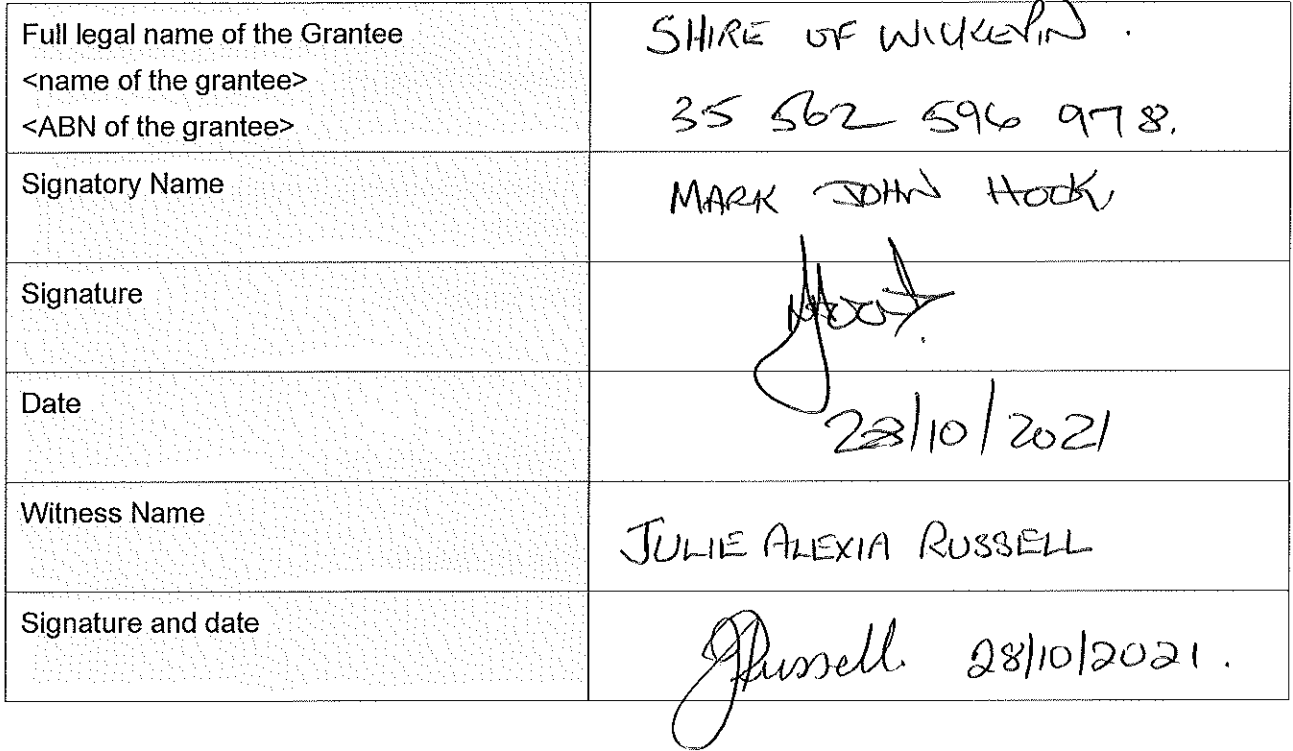 Full legal name of the Grantee
<name of the grantee>
<ABN of the grantee>
SHIRE OF WICKEPIN.
35 562 596 978.
Signatory Name
MARK JOHN HOOK
Signature
Hook.
Date
28/10/2021
Witness Name
JULIE ALEXIA RUSSELL
Signature and date
JRussell. 28/10/2021.